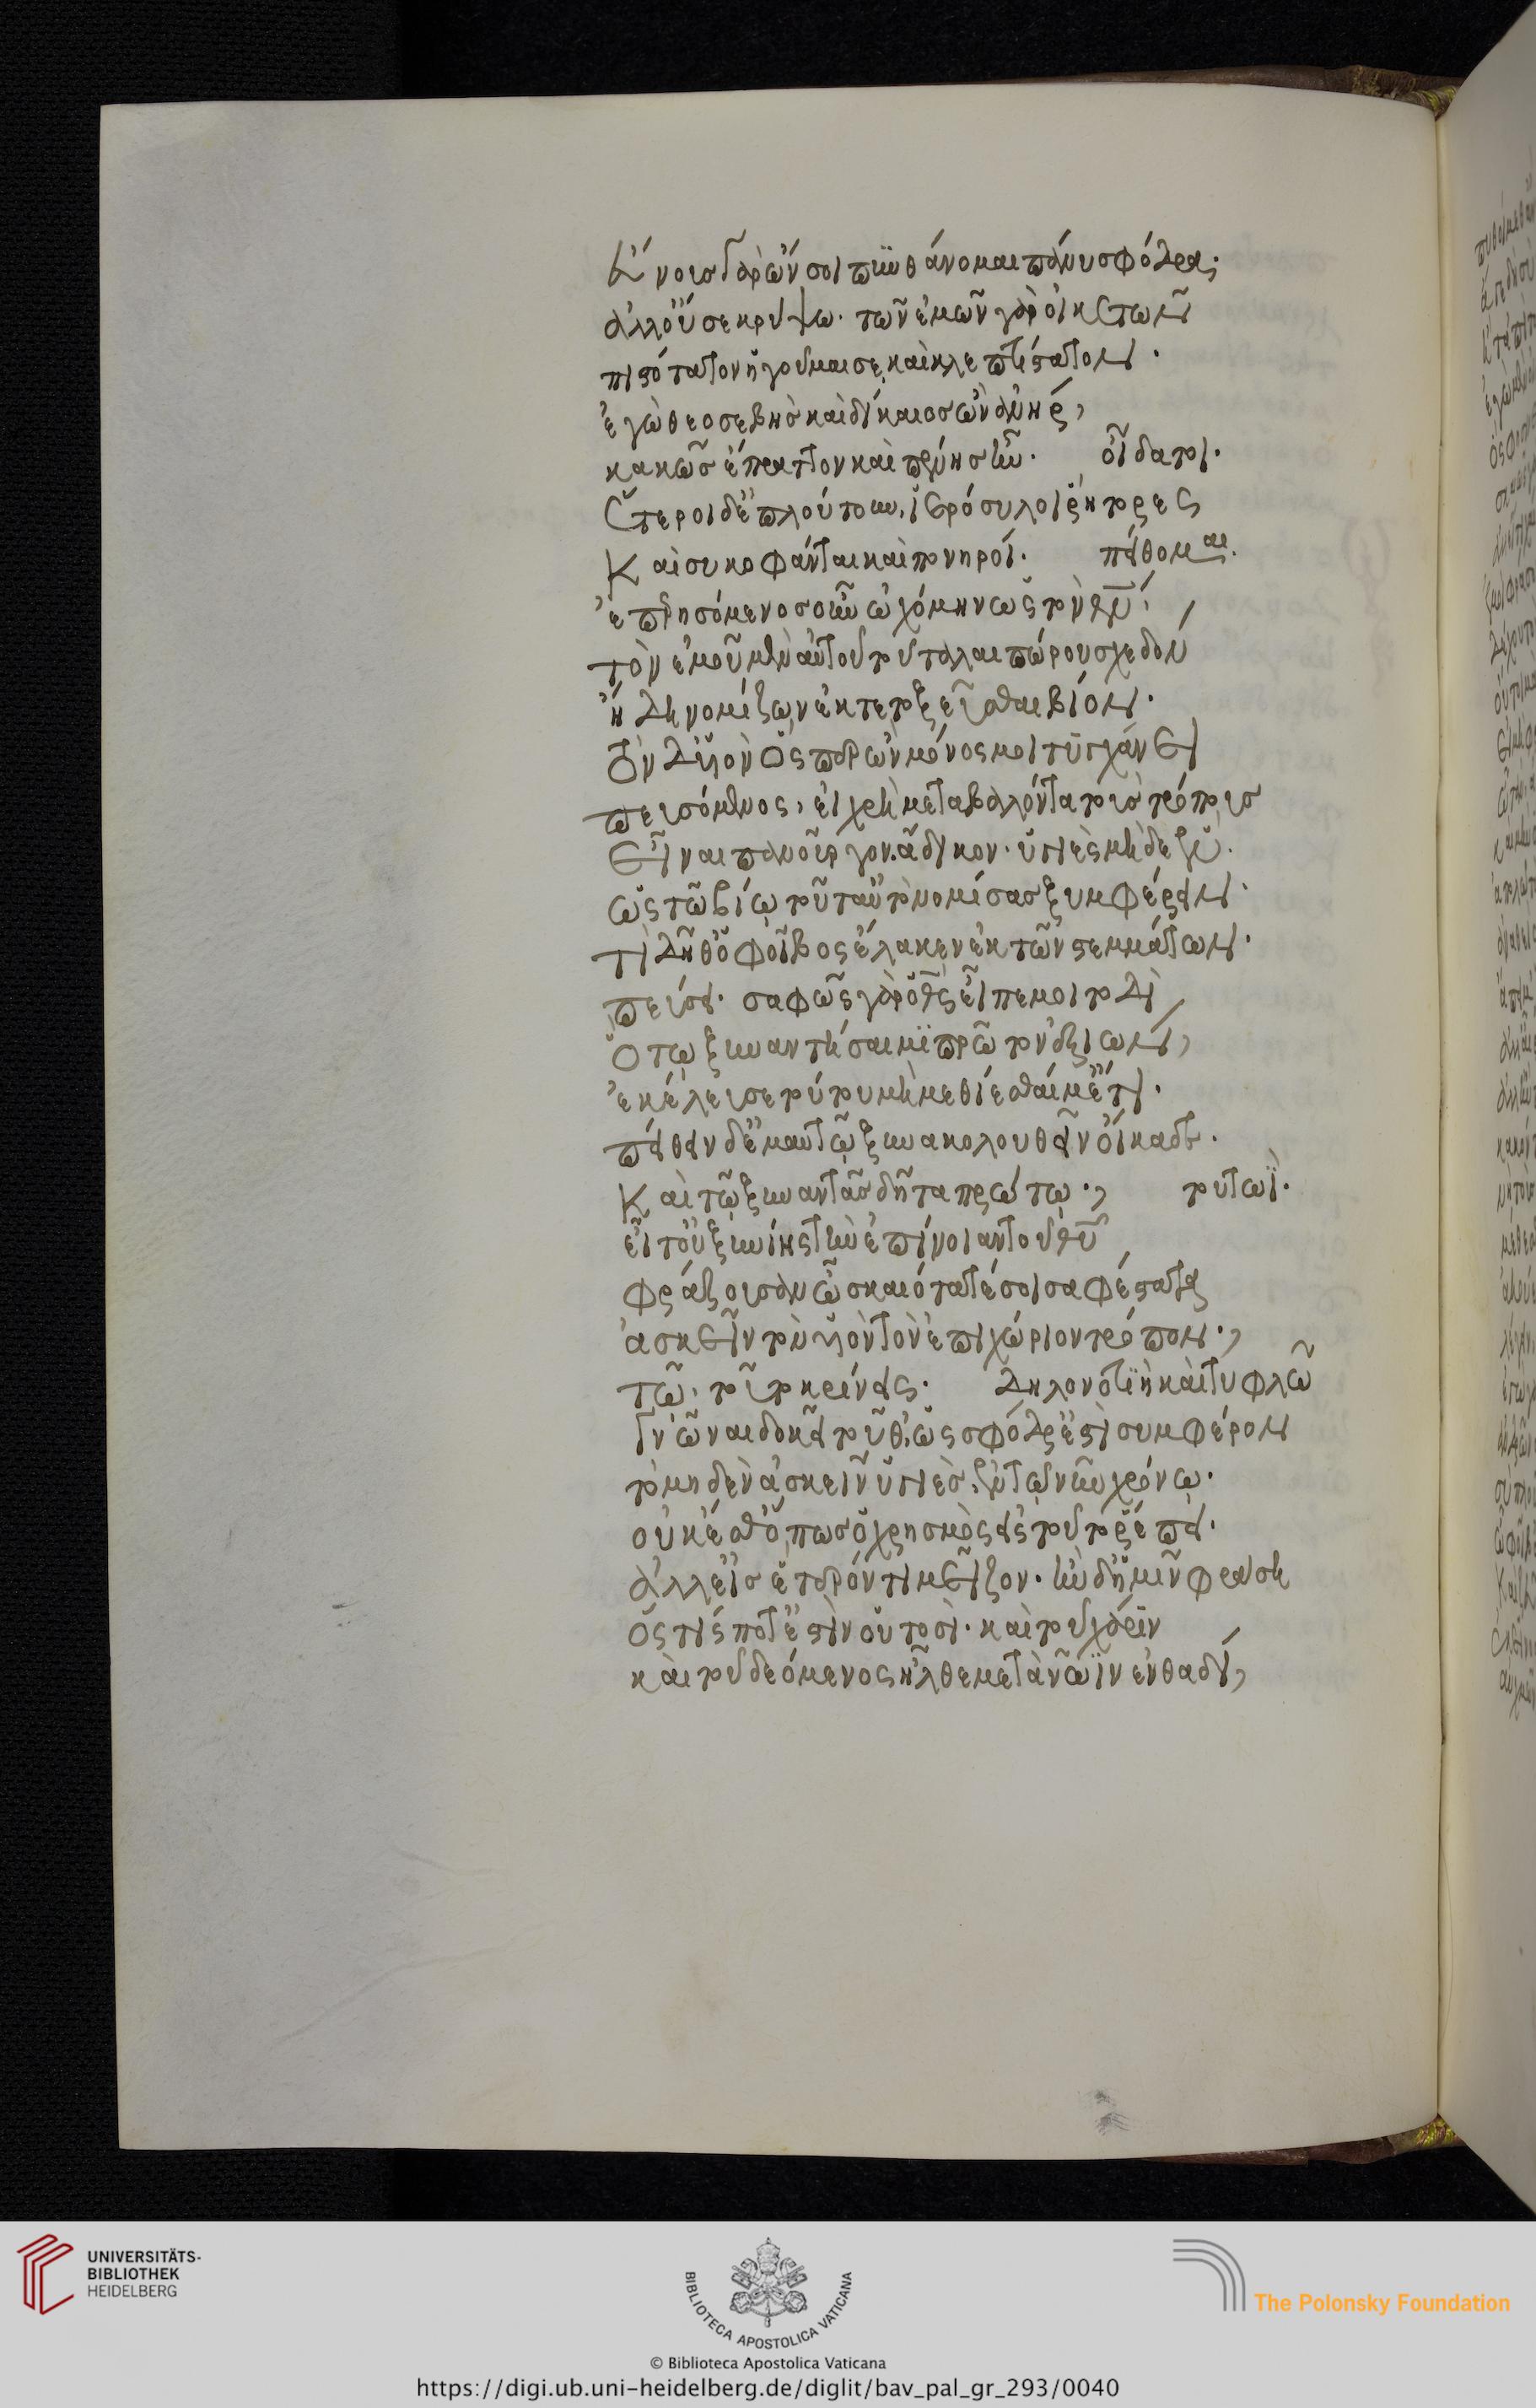 εὔνους γὰρ ὤν σοι πυνθάνομαι πάνυ σφόδρα·
ἀλλ' οὔ σε κρύψω· τῶν ἐμῶν γὰρ οἰκετῶν
πιστότατον ἡγοῦμαί σε, καὶ κλεπτίστατον·
ἐγὼ θεοσεβὴς καὶ δίκαιος ὢν ἀνὴρ,
κακῶς ἔπραττον καὶ πένης ἦν· οἶδά τοι·
ἕτεροι δ' ἐπλούτουν, ἱερόσυλοι ῥήτορες
καὶ συκοφάνται καὶ πονηροί· πείθομαι.
ἐπερησόμενος οὖν ᾠχόμην ὡς τὸν θεόν,
τὸν ἐμοῦ μὲν αὐτοῦ τοῦ ταλαιπώρου σχεδὸν
ἤδη νομίζων ἐκτετοξεῦσθαι βίον·
τὸν δ' υἱὸν ὅσπερ ὢν μόνος μοι τυγχάνει
πευσόμενος, εἰ χρὴ μεταβαλόντα τοὺς τρόπους
εἶναι πανοῦργον. ἄδικον· ὑγιὲς μηδὲ ἕν.
ὡς τῷ βίῳ τοῦτ' αὐτὸ νομίσας ξυμφέρειν·
τί δῆθ' ὁ φοῖβος ἔλακεν ἐκ τῶν στεμμάτων·
πεύσει· σαφῶς γὰρ ὁ θεὸς εἶπέ μοι τοδί,
ὅτῳ ξυναντήσαιμι πρῶτον ἐξιών,
ἐκέλευσε τούτου μὴ μεθίεσθαί μ' ἔτι·
πείθειν δ' ἐμαυτῷ ξυνακολουθεῖν οἴκαδε·
καὶ τῷ ξυναντᾷς δῆτα πρώτῳ·, τουτωί·
εἶτ' οὐ ξυνίης τὴν ἐπίνοιαν τοῦ θεοῦ
φράζουσαν ὦ σκαιότατέ σοι σαφέστατα
ἀσκεῖν τὸν υἱὸν τὸν ἐπιχώριον τρόπον·,
τῷ τοῦτο κρίνεις· δηλονοτιὴ καὶ τυφλῷ
γνῶναι δοκεῖ τοῦθ', ὡς σφόδρ' ἐστὶ συμφέρον
τὸ μηδὲν ἀσκεῖν ὑγιὲς ἐν τῷ νῦν χρόνῳ·
οὐκ ἔσθ' ὅπως ὁ χρησμὸς εἰς τοῦτο ῥέπει·
ἀλλ' εἰς ἕτερόν τι μεῖζον· ἢν δ' ἡμῖν φράσῃ
ὅστις ποτ' ἐστὶν οὑτοσί· καὶ τοῦ χάριν
καὶ τοῦ δεόμενος ἦλθε μετὰ νῶϊν ἐνθαδί,
UNIVERSITÄTS-
BIBLIOTHEK
HEIDELBERG
BIBLIOTECA APOSTOLICA VATICANA
The Polonsky Foundation
© Biblioteca Apostolica Vaticana
https://digi.ub.uni-heidelberg.de/diglit/bav_pal_gr_293/0040